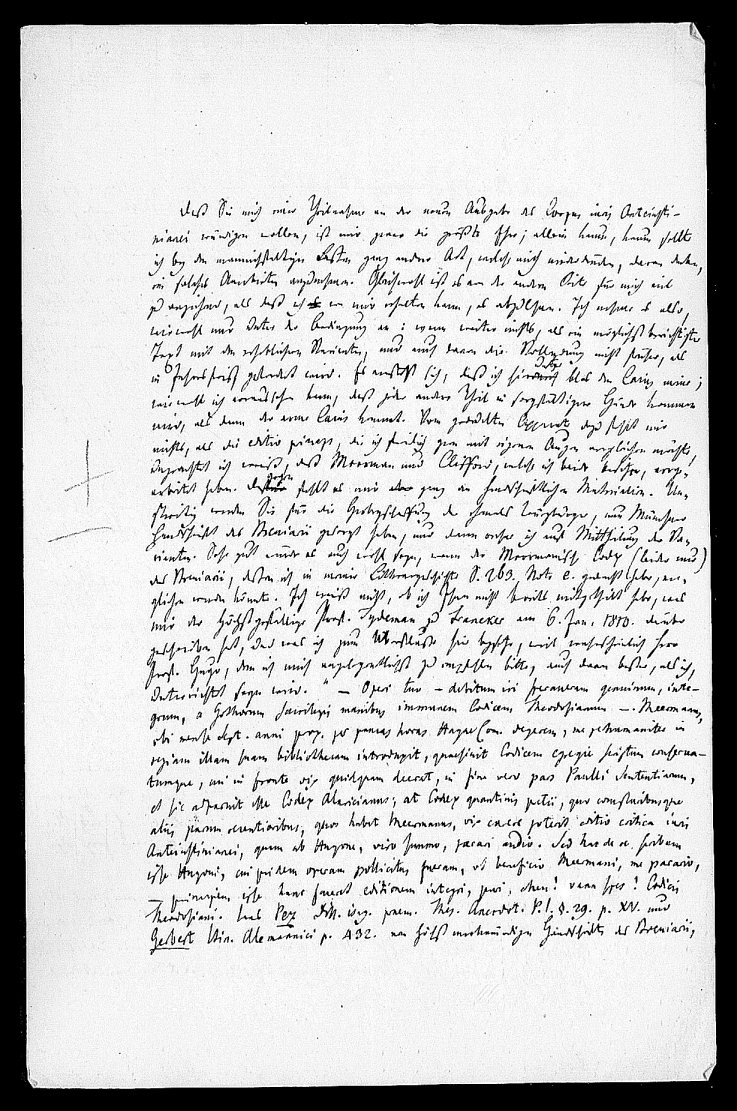 Daß Sie mich einer Theilnahme an der neuen Ausgabe des Corpus iuris Anteiusti-
nianei würdigen wollen, ist mir zwar die größte Ehre; allein kaum, kaum sollte
ich bey den mannichfaltigen Lasten ganz andrer Art, welche mich niederdrücken, daran denken,
ein solches Anerbieten anzunehmen. Gleichwohl ist es von der andern Seite für mich viel
zu anziehend, als daß ich es von mir erhalten kann, es abzulehnen. Ich nehme es also,
wiewohl nur unter der Bedingung an: wenn weiter nichts, als ein möglichst berichtigter
Text mit den erheblichen Varianten, und auch davon die Vollendung nicht früher, als
in Jahresfrist gefordert wird. Es versteht sich, daß ich hierunter blos den Caius meine;
wiewohl ich voraussehen kann, daß jeder andere Theil in sorgfältigere Hände kommen
wird, als denn der arme Caius kommt. Vom gedruckten Apparat dazu fehlt mir
nichts, als die editio princeps, die ich freilich gern mit eigenen Augen verglichen möchte,
ungeachtet ich weiß, daß Meerman und Clifford, welche ich beide besitze, vorge-
arbeitet haben. Dagegen fehlt es mir aber ganz an handschriftlichen Materialien. Un-
streitig werden Sie für die Herbeyschaffung der ehemals Würzburger, nun Münchner
Handschrift des Breviarii gesorgt haben, und dann rechne ich auf Mittheilung der Va-
rianten. Sehr gut würde es auch wohl seyn, wenn der Meermanische Codex (leider nur)
des Breviarii, dessen ich in meiner Litterargeschichte S. 263. Note e. gedacht habe, ver-
glichen werden könnte. Ich weiß nicht, ob ich Ihnen nicht bereits mitgetheilt habe, was
mir der höchstgefällige Prof. Tydeman zu Franecker am 6. Jan. 1810. darüber
geschrieben hat, und was ich zum Überflusse hier beyfüge, weil wahrscheinlich Herr
Prof. Hugo, dem ich mich angelegentlichst zu empfehlen bitte, auch davon besser, als ich,
unterrichtet seyn wird. "— Operi tuo — debitum iri speraveram genuinum, inte-
grum, a Gothorum sacrilegis manibus immunem Codicem Theodosianum —. Meermanus,
ubi mense Sept. anni prox. per paucas horas Hagae Com. degerem, me perhumaniter in
regiam illam suam bibliothecam introduxit, quaesivit Codicem egregie scriptum conserva-
tumque, cui in fronte vix quidquam deerat, in fine vero pars Paulli Sententiarum,
et sic apparuit esse Codex Alaricianus; at Codex quantivis pretii, quo compluribusque
aliis parum recentioribus, quos habet Meermanus, vix carere poterit editio critica iuris
Anteiustinianei, quam ab Hugone, viro summo, parari audio. Sed has de re scribam
ipse Hugoni, cui pridem operam pollicitus fueram, ut beneficio Meermani, me parario,
— princeps ipse hunc faceret editionem integri, puri, ohen! vana spes! Codicis
Theodosiani. Was Pez Diss. isag. praem. Thes. Anecdot. P. I. §. 29. p. XV. und
Gerbert Itin. Alemannici p. 432. von höchst merkwürdigen Handschriften des Breviarii,